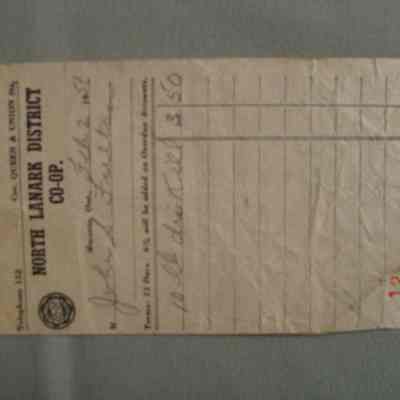 Telephone 152 Cor. QUEEN & UNION Sts.
NORTH LANARK DISTRICT
CO-OP.
Feb 2 1952
M John L Fulton
Terms: 15 Days. 6% will be added on Overdue Accounts.
10 lb 3 50